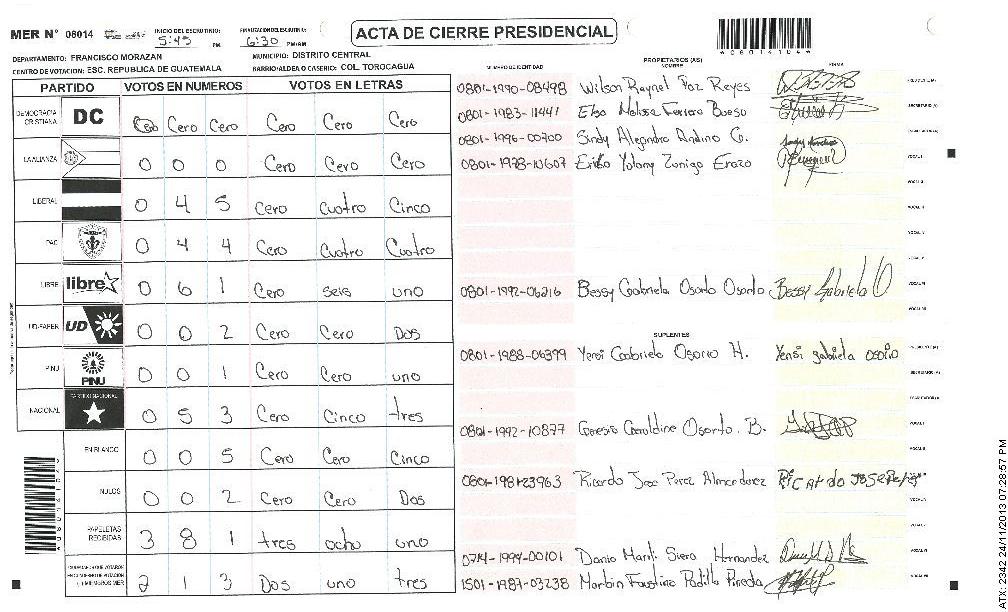 MER N° 08014
INICIO DEL ESCRUTINIO:
5:45 PM
FINALIZACION DEL ESCRUTINIO:
6:30 PM/AM
ACTA DE CIERRE PRESIDENCIAL
*08014104*
DEPARTAMENTO: FRANCISCO MORAZAN
MUNICIPIO: DISTRITO CENTRAL
CENTRO DE VOTACION: ESC. REPUBLICA DE GUATEMALA
BARRIO/ALDEA O CASERIO: COL. TOROCAGUA
NUMERO DE IDENTIDAD PROPIETARIOS (AS) NOMBRE FIRMA
PARTIDO VOTOS EN NUMEROS VOTOS EN LETRAS
DEMOCRACIA CRISTIANA DC Cero Cero Cero Cero Cero Cero
LA ALIANZA 0 0 0 Cero Cero Cero
LIBERAL 0 4 5 Cero cuatro Cinco
PAC 0 4 4 Cero Cuatro Cuatro
LIBRE libre 0 6 1 Cero seis uno
UD-FAPER UD 0 0 2 Cero Cero Dos
PINU PINU 0 0 1 Cero Cero uno
NACIONAL PARTIDO NACIONAL 0 5 3 Cero Cinco tres
EN BLANCO 0 0 5 Cero Cero Cinco
NULOS 0 0 2 Cero Cero Dos
PAPELETAS RECIBIDAS 3 8 1 tres ocho uno
CIUDADANOS QUE VOTARON EN CUADERNO DE VOTACION Y MIEMBROS MER 2 1 3 Dos uno tres
0801-1990-08498 Wilson Raynel Paz Reyes
0801-1983-11441 Elsa Melissa Ferrera Bueso
0801-1996-00700 Sindy Alejandra Andino G.
0801-1978-10607 Ericka Yolany Zuniga Erazo
0801-1992-06216 Bessy Gabriela Osorto Osorto Bessy Gabriela O
SUPLENTES
0801-1988-06399 Yensi Gabriela Osorio H. Yensi gabriela osorio
0801-1992-10877 Genesis Geraldine Osorto. B.
0801-1981-23963 Ricardo Jose Perez Almendarez Ricardo Jose Perez
0714-1994-00101 Danio Marel Siero Hernandez
1501-1987-03238 Marbin Faustino Padilla Pineda
ATX: 2342 24/11/2013 07:28:57 PM